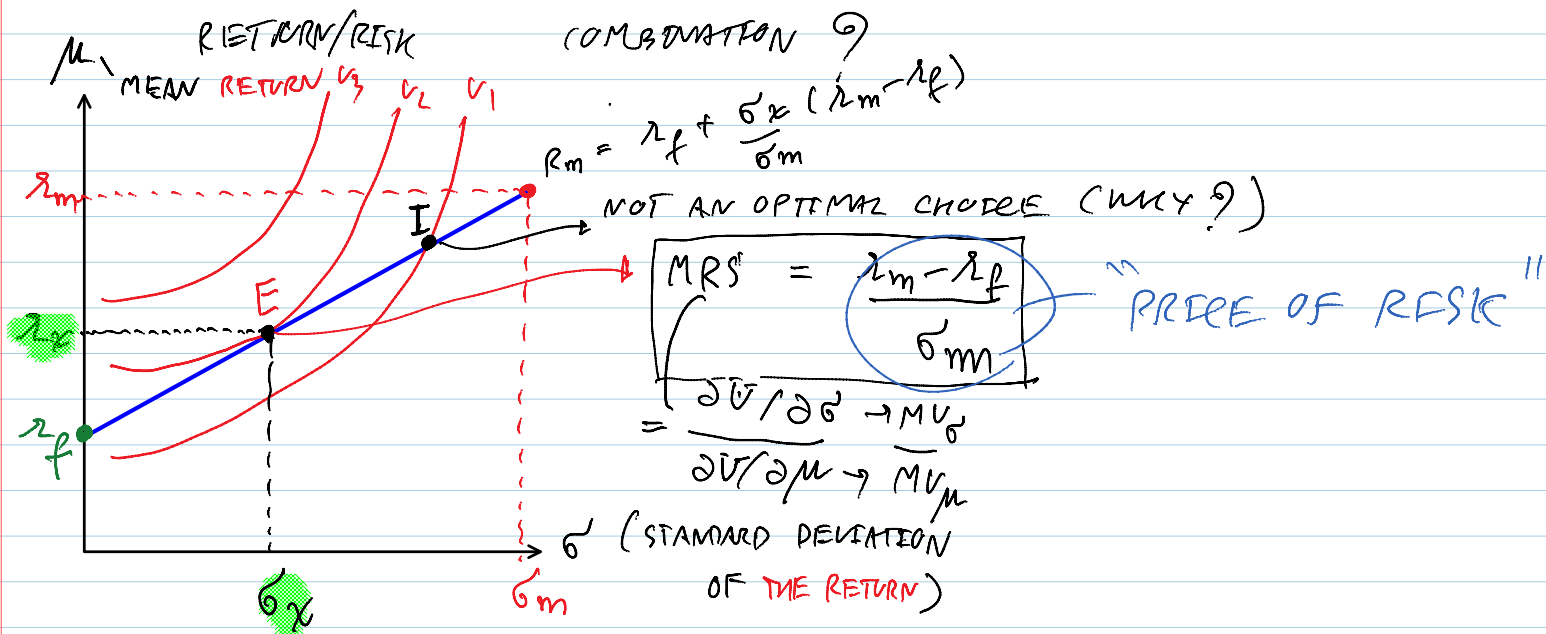 RETURN/RISK COMBINATION ?
μ, MEAN RETURN U3 U2 U1
Rm = rf + σx/σm (rm - rf)
rm
I NOT AN OPTIMAL CHOICE (WHY?)
MRS = (rm - rf)/σm "PRICE OF RISK"
E
rx
rf
= ∂U/∂σ → MUσ
∂U/∂μ → MUμ
σ (STANDARD DEVIATION
OF THE RETURN)
σx σm